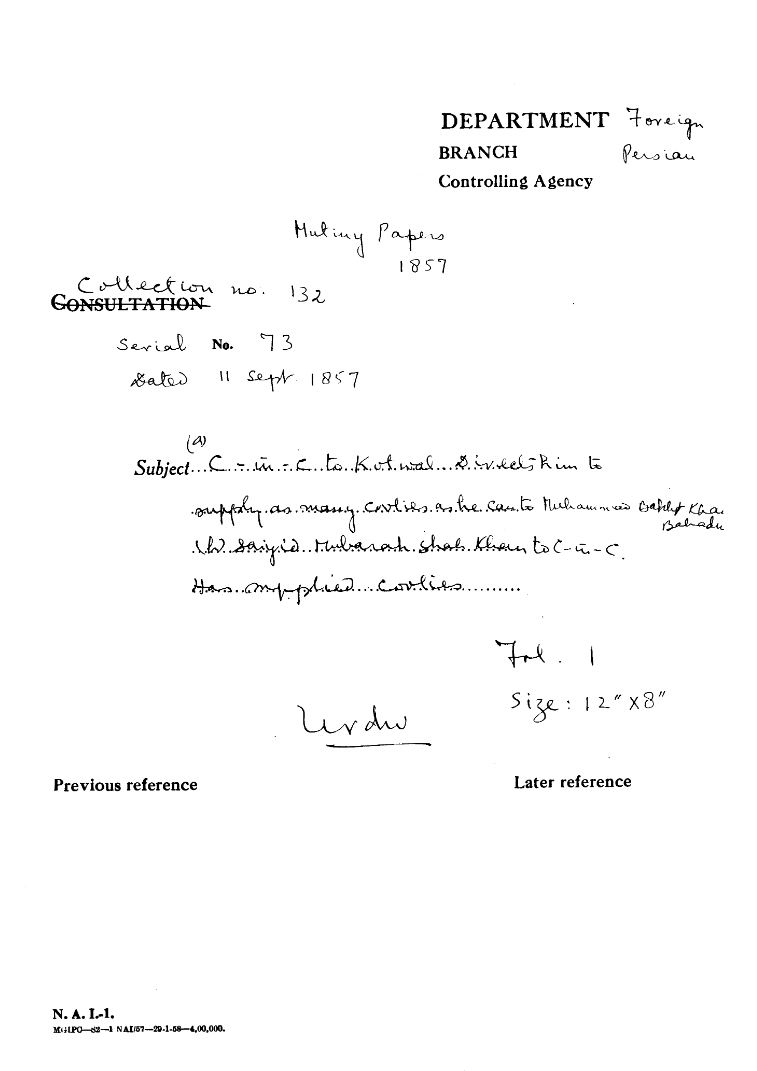 DEPARTMENT Foreign
BRANCH Persian
Controlling Agency
Mutiny Papers
1857
Collection no. 132
CONSULTATION
Serial No. 73
Dated 11 Sept. 1857
(a)
Subject...C-in-C to Kotwal. Directs him to
supply as many coolies as he can to Muhammad Bakht Khan
Bahadur
(b) Saiyid Mubarak Shah Khan to C-in-C.
Has supplied coolies..........
Fol. 1
Size: 12" X 8"
Urdu
Previous reference
Later reference
N. A. I.-1.
MGIPC—S2—1 NAI/57—29-1-58—4,00,000.